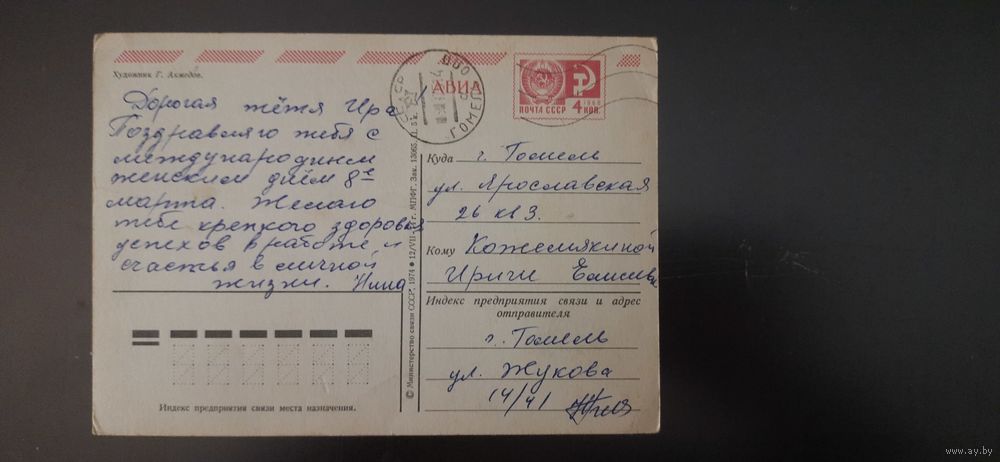 Художник Г. Ахмедов.
АВИА
СССР
ГОМЕЛЬ
ПОЧТА СССР
4 КОП.
Дорогая тётя Ира
Поздравляю тебя с
международным
женским днём 8е
марта. Желаю
тебе крепкого здоровья
успехов в работе, и
счастья в личной
жизни. Нина
Куда г. Гомель
ул. Ярославская
26 кв 3.
Кому Кожемякиной
Ирине
Индекс предприятия связи и адрес
отправителя
г. Гомель
ул. Жукова
14/41
Индекс предприятия связи места назначения.
© Министерство связи СССР, 1974 ● 12/VII- г. МПФГ. Зак. 13065. Ц. 5 к.
www.ay.by